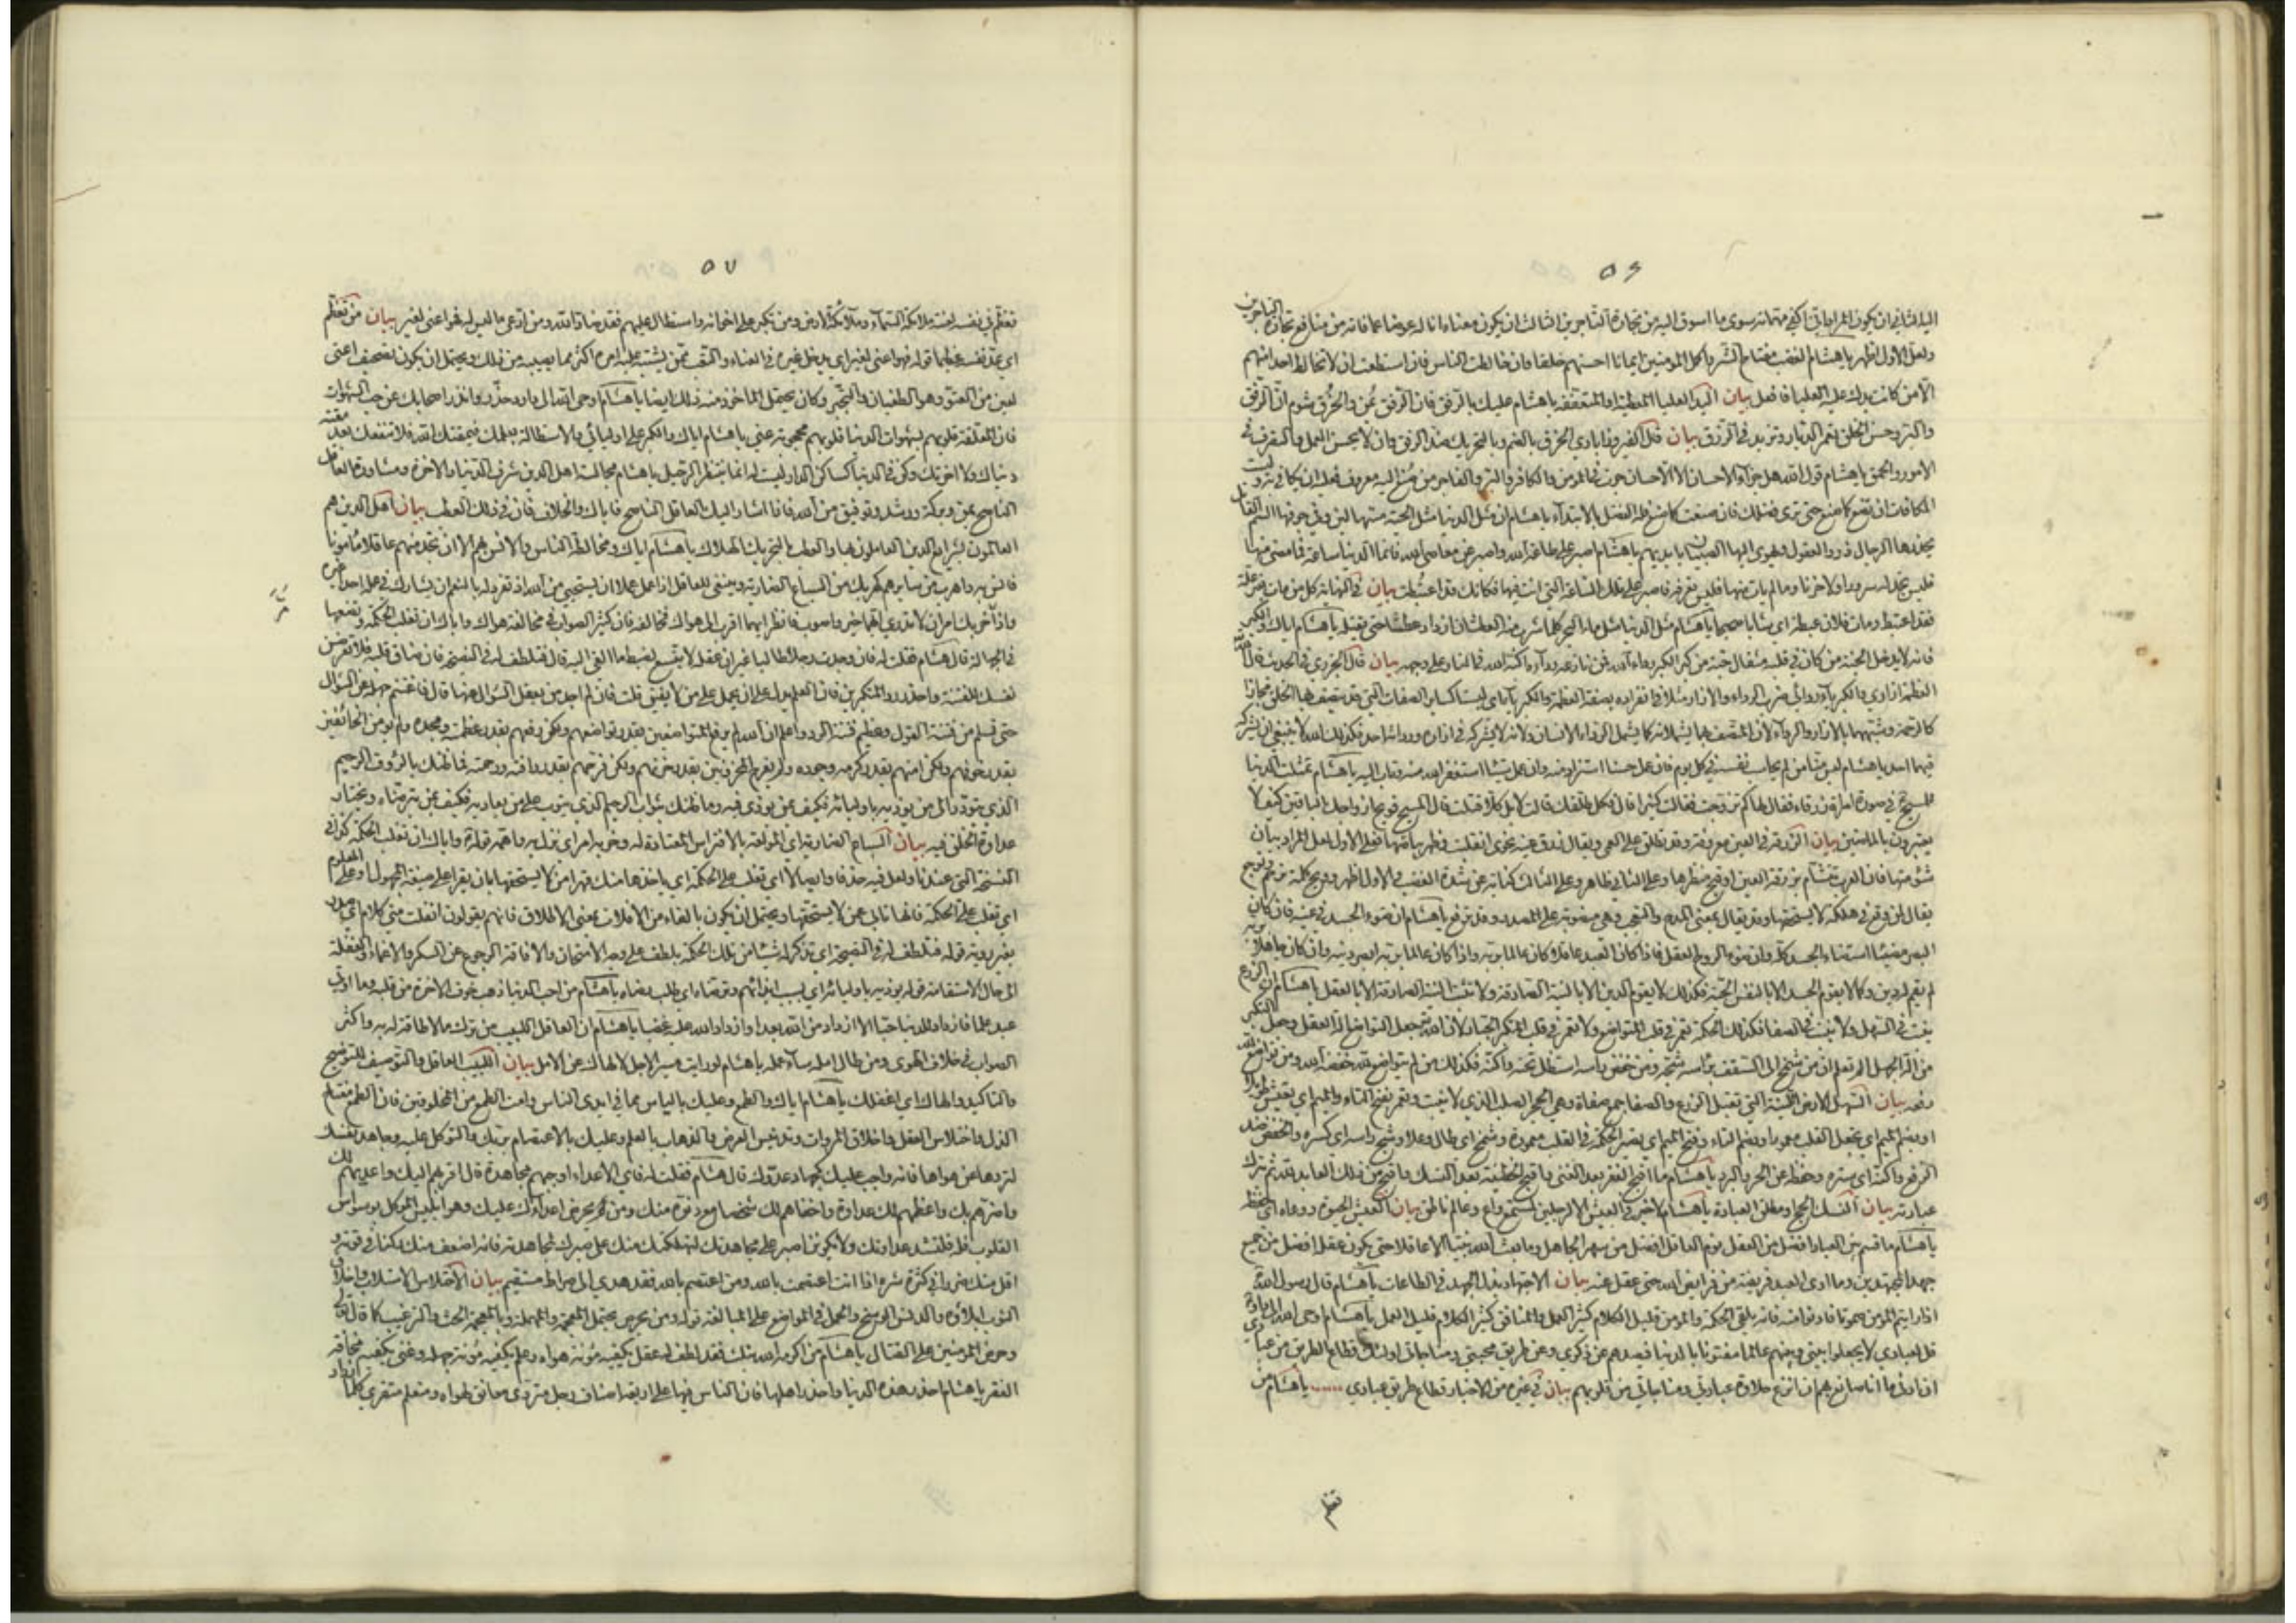 ٥٦
اليه الثاني ان يكون المراد اني اكفي مهماته سوى ما اسوق اليه من تجارة التاجرين الثالث ان يكون معناه انا له عوضا عما فاته من منافع تجارة التاجرين
ولعل الاول اظهر يا هشام الغضب مفتاح الشر واكمل المؤمنين ايمانا احسنهم خلقا وان خالطت الناس فان استطعت ان لا تخالط احدا منهم
الا من كانت يدك عليه العليا فافعل بيان اليد العليا المعطية او المتعففة يا هشام عليك بالرفق فان الرفق يمن والخرق شوم ان الرفق
والبر وحسن الخلق يعمر الديار ويزيد في الرزق بيان قال الفيروزابادي الخرق بالضم وبالتحريك ضد الرفق وان لا يحسن العمل والتصرف في
الامور والحمق يا هشام قول الله هل جزاء الاحسان الا الاحسان جرت في المؤمن والكافر والبر والفاجر من صنع اليه معروف فعليه ان يكافي به وليست
المكافات ان تصنع كما صنع حتى ترى فضلك فان صنعت كما صنع فله الفضل بالابتداء يا هشام ان مثل الدنيا مثل الحية مسها لين وفي جوفها السم القاتل
يحذرها الرجال ذوو العقول ويهوي اليها الصبيان بايديهم يا هشام اصبر على طاعة الله واصبر عن معاصي الله فانما الدنيا ساعة فما مضى منها
فليس تجد له سرورا ولا حزنا وما لم يات منها فليس تعرفه فاصبر على تلك الساعة التي انت فيها فكانك قد اغتبطت بيان في النهاية كل من مات بغير علة
فقد اعتبط ومات فلان عبطة اي شابا صحيحا يا هشام مثل الدنيا مثل ماء البحر كلما شرب منه العطشان ازداد عطشا حتى يقتله يا هشام اياك والكبر
فانه لا يدخل الجنة من كان في قلبه مثقال حبة من كبر الكبر رداء الله فمن نازعه رداءه اكبه الله في النار على وجهه بيان قال الجزري في الحديث قال الله
العظمة ازاري والكبرياء ردائي ضرب الرداء والازار مثلا في انفراده بصفة العظمة والكبرياء اي ليستا كساير الصفات التي قد يتصف بها الخلق مجازا
كالرحمة وشبههما بالازار والرداء لان المتصف بهما يشملانه كما يشمل الرداء الانسان ولانه لا يشركه في ازاره وردائه احد فكذلك الله لا ينبغي ان يشركه
فيهما احد يا هشام ليس منا من لم يحاسب نفسه في كل يوم فان عمل حسنا استزاد منه وان عمل سيئا استغفر الله منه وتاب اليه يا هشام تمثلت الدنيا
للمسيح في صورة امراة زرقاء فقال لها كم تزوجت فقالت كثيرا قال فكل طلقك قالت لا بل كلا قتلت قال المسيح فويح ازواجك الباقين كيف لا
يعتبرون بالماضين بيان الزرقة في العين معروفة وقد تطلق على العمى ويقال زرقت عينه نحوي انقلبت وظهر بياضها فعلى الاول لعل المراد بيان
شومتها فان العرب تتشام بزرقة العين او قبح منظرها وعلى الثاني ظاهر وعلى الثالث كناية عن شدة الغضب والاول اظهر وويح كلمة ترحم وتوجع
يقال لمن وقع في هلكة لا يستحقها وقد يقال بمعنى المدح والتعجب وهي منصوبة على المصدر وقد ترفع يا هشام ان ضوء الجسد في عينه فان كان
البصر مضيئا استضاء الجسد كله وان ضوء الروح العقل فاذا كان العبد عاقلا كان عالما بربه واذا كان عالما بربه ابصر دينه وان كان جاهلا بربه
لم يقم له دين وكما لا يقوم الجسد الا بالنفس الحية فكذلك لا يقوم الدين الا بالنية الصادقة ولا تثبت النية الصادقة الا بالعقل يا هشام ان الزرع
ينبت في السهل ولا ينبت في الصفا فكذلك الحكمة تعمر في قلب المتواضع ولا تعمر في قلب المتكبر الجبار لان الله جعل التواضع آلة العقل وجعل التكبر
من آلة الجهل الم تعلم ان من شمخ الى السقف براسه شجه ومن خفض راسه استظل تحته واكنه فكذلك من لم يتواضع لله خفضه الله ومن تواضع لله
رفعه بيان السهل الارض اللينة التي تقبل الزرع والصفا جمع صفاة وهي الحجر الصلد الذي لا ينبت وتعمر بفتح التاء والميم اي تعيش طويلا
او بضم الميم اي تجعل القلب معمورا وبضم التاء وفتح الميم اي تصير الحكمة في القلب معمورة وشمخ اي طال وعلا وشج راسه اي كسره والخفض ضد
الرفع واكنه اي ستره وحفظه عن الحر والبرد يا هشام ما اقبح الفقر بعد الغنى واقبح الخطيئة بعد النسك واقبح من ذلك العابد لله ثم يترك
عبادته بيان النسك الحج ومطلق العبادة يا هشام لا خير في العيش الا لرجلين لمستمع واع وعالم ناطق بيان العيش الحيوة ووعاه اي حفظه
يا هشام ما قسم بين العباد افضل من العقل نوم العاقل افضل من سهر الجاهل وما بعث الله نبيا الا عاقلا حتى يكون عقله افضل من جميع
جهد المجتهدين وما ادى العبد فريضة من فرايض الله حتى عقل عنه بيان الاجتهاد بذل الجهد في الطاعات يا هشام قال رسول الله
اذا رايتم المؤمن صموتا فادنوا منه فانه يلقي الحكمة والمؤمن قليل الكلام كثير العمل والمنافق كثير الكلام قليل العمل يا هشام اوحى الله الى داود
قل لعبادي لا يجعلوا بيني وبينهم عالما مفتونا بالدنيا فيصدهم عن ذكري وعن طريق محبتي ومناجاتي اولئك قطاع الطريق من عبادي
ان ادنى ما انا صانع بهم ان انزع حلاوة عبادتي ومناجاتي من قلوبهم بيان في غيره من الاخبار قطاع طريق عبادي يا هشام من
تعظم
٥٧
تعظم في نفسه لعنته ملائكة السماء وملائكة الارض ومن تكبر على اخوانه واستطال عليهم فقد ضاد الله ومن ادعى ما ليس له فهو اعنى لغير بيان من تعظم
اي عد نفسه عظيما قوله فهو اعنى لغير اي يدخل غيره في العناء والتعب ممن يشتبه عليه امره اكثر مما يصيبه من ذلك ويحتمل ان يكون تصحيف اعتى
لغير من العتو وهو الطغيان والتجبر وكان يحتمل الماخوذ منه ذلك ايضا يا هشام اوحى الله الى داود حذر وانذر اصحابك عن حب الشهوات
فان المعلقة قلوبهم بشهوات الدنيا قلوبهم محجوبة عني يا هشام اياك والكبر على اوليائي والاستطالة بعلمك فيمقتك الله فلا تنفعك بعد مقته
دنياك ولا اخرتك وكن في الدنيا كساكن الدار ليست له انما ينتظر الرحيل يا هشام مجالسة اهل الدين شرف الدنيا والاخرة ومشاورة العاقل
الناصح يمن وبركة ورشد وتوفيق من الله فاذا اشار اليك العاقل الناصح فاياك والخلاف فان في ذلك العطب بيان اهل الدين هم
العالمون بشرايع الدين العاملون بها والعطب بالتحريك الهلاك يا هشام اياك ومخالطة الناس والانس بهم الا ان تجد منهم عاقلا مامونا
فانس به واهرب من سايرهم كهربك من السباع الضارية وينبغي للعاقل اذا عمل عملا ان يستحيي من الله اذ تفرد له بالنعم ان يشارك في عمله احدا غيره
واذا حزبك امران لا تدري ايهما خير واصوب فانظر ايهما اقرب الى هواك فخالفه فان كثير الصواب في مخالفة هواك واياك ان تغلب الحكمة وتضعها
في الجهالة قال هشام فقلت له فان وجدت رجلا طالبا غير ان عقله لا يتسع لضبط ما القي اليه قال فتلطف له في النصيحة فان ضاق قلبه فلا تعرضن
نفسك للفتنة واحذر رد المتكبرين فان العلم يدل على ان يحمل على من لا يفيق قلت فان لم اجد من يعقل السؤال عنها قال فاغتنم جهله عن السؤال
حتى تسلم من فتنة القول وعظيم فتنة الرد واعلم ان الله لم يرفع المتواضعين بقدر تواضعهم ولكن رفعهم بقدر عظمته ومجده ولم يؤمن الخائفين
بقدر خوفهم ولكن امنهم بقدر كرمه وجوده ولم يفرج المحزونين بقدر حزنهم ولكن فرحهم بقدر رافته ورحمته فما ظنك بالرؤف الرحيم
الذي يتودد الى من يؤذيه باوليائه فكيف بمن يؤذى فيه وما ظنك بالتواب الرحيم الذي يتوب على من يعاديه فكيف بمن يترضاه ويختار
عداوة الخلق فيه بيان السباع الضارية اي المولعة بالافتراس المعتادة له وحزبه امر اي نزل به واهمه قوله واياك ان تغلب الحكمة كذا في
النسخة التي عندنا ولعل فيه حذفا وايصالا اي تغلب على الحكمة اي ياخذها منك قهرا من لا يستحقها بان يقرا على صيغة المجهول او على المعلوم
اي تغلب على الحكمة فانها تابى عمن لا يستحقها ويحتمل ان يكون بالفاء من الافلات بمعنى الاطلاق فانهم يقولون انفلت مني كلام اي صدر
بغير روية قوله فتلطف له في النصيحة اي تذكر له شيئا من تلك الحكمة بلطف على وجه الامتحان والافاقة الرجوع عن السكر والاغماء والغفلة
الى حال الاستقامة قوله يؤذيه باوليائه اي بسبب ايذائهم وترضاه اي طلب رضاه يا هشام من احب الدنيا ذهب خوف الاخرة من قلبه وما اوتي
عبد علما فازداد للدنيا حبا الا ازداد من الله بعدا وازداد الله عليه غضبا يا هشام ان العاقل اللبيب من ترك ما لا طاقة له به واكثر
الصواب في خلاف الهوى ومن طال امله ساء عمله يا هشام لو رايت مسير الاجل لالهاك عن الامل بيان اللبيب العاقل والتوصيف للتوضيح
والتاكيد والهاك اي اغفلك يا هشام اياك والطمع وعليك بالياس مما في ايدي الناس وامت الطمع من المخلوقين فان الطمع مفتاح
الذل واختلاس العقل واخلاق المروات وتدنيس العرض والذهاب بالعلم وعليك بالاعتصام بربك والتوكل عليه وجاهد نفسك
لتردها عن هواها فانه واجب عليك كجهاد عدوك قال هشام فقلت له فاي الاعداء اوجبهم مجاهدة قال اقربهم اليك واعداهم لك
واضرهم بك واعظمهم لك عداوة واخفاهم لك شخصا مع دنوه منك ومن يحرض اعداءك عليك وهو ابليس الموكل بوسواس
القلوب فله فلتشتد عداوتك ولا يكونن اصبر على مجاهدتك لهلكتك منك على صبرك لمجاهدته فانه اضعف منك ركنا في قوته و
اقل منك ضررا في كثرة شره اذا انت اعتصمت بالله ومن اعتصم بالله فقد هدي الى صراط مستقيم بيان الاختلاس الاستلاب واخلاق
الثوب ابلاؤه والدنس الوسخ والحمل في المواضع على المبالغة قوله ومن يحرض يحتمل المعجمة والمهملة وبالمعجمة الحث والترغيب كما قال تعالى
وحرض المؤمنين على القتال يا هشام من اكرمه الله بثلث فقد لطف له عقل يكفيه مؤنة هواه وعلم يكفيه مؤنة جهله وغنى يكفيه مخافة
الفقر يا هشام احذر هذه الدنيا واحذر اهلها فان الناس فيها على اربعة اصناف رجل متردى معانق لهواه ومتعلم متقرئ كلما ازداد